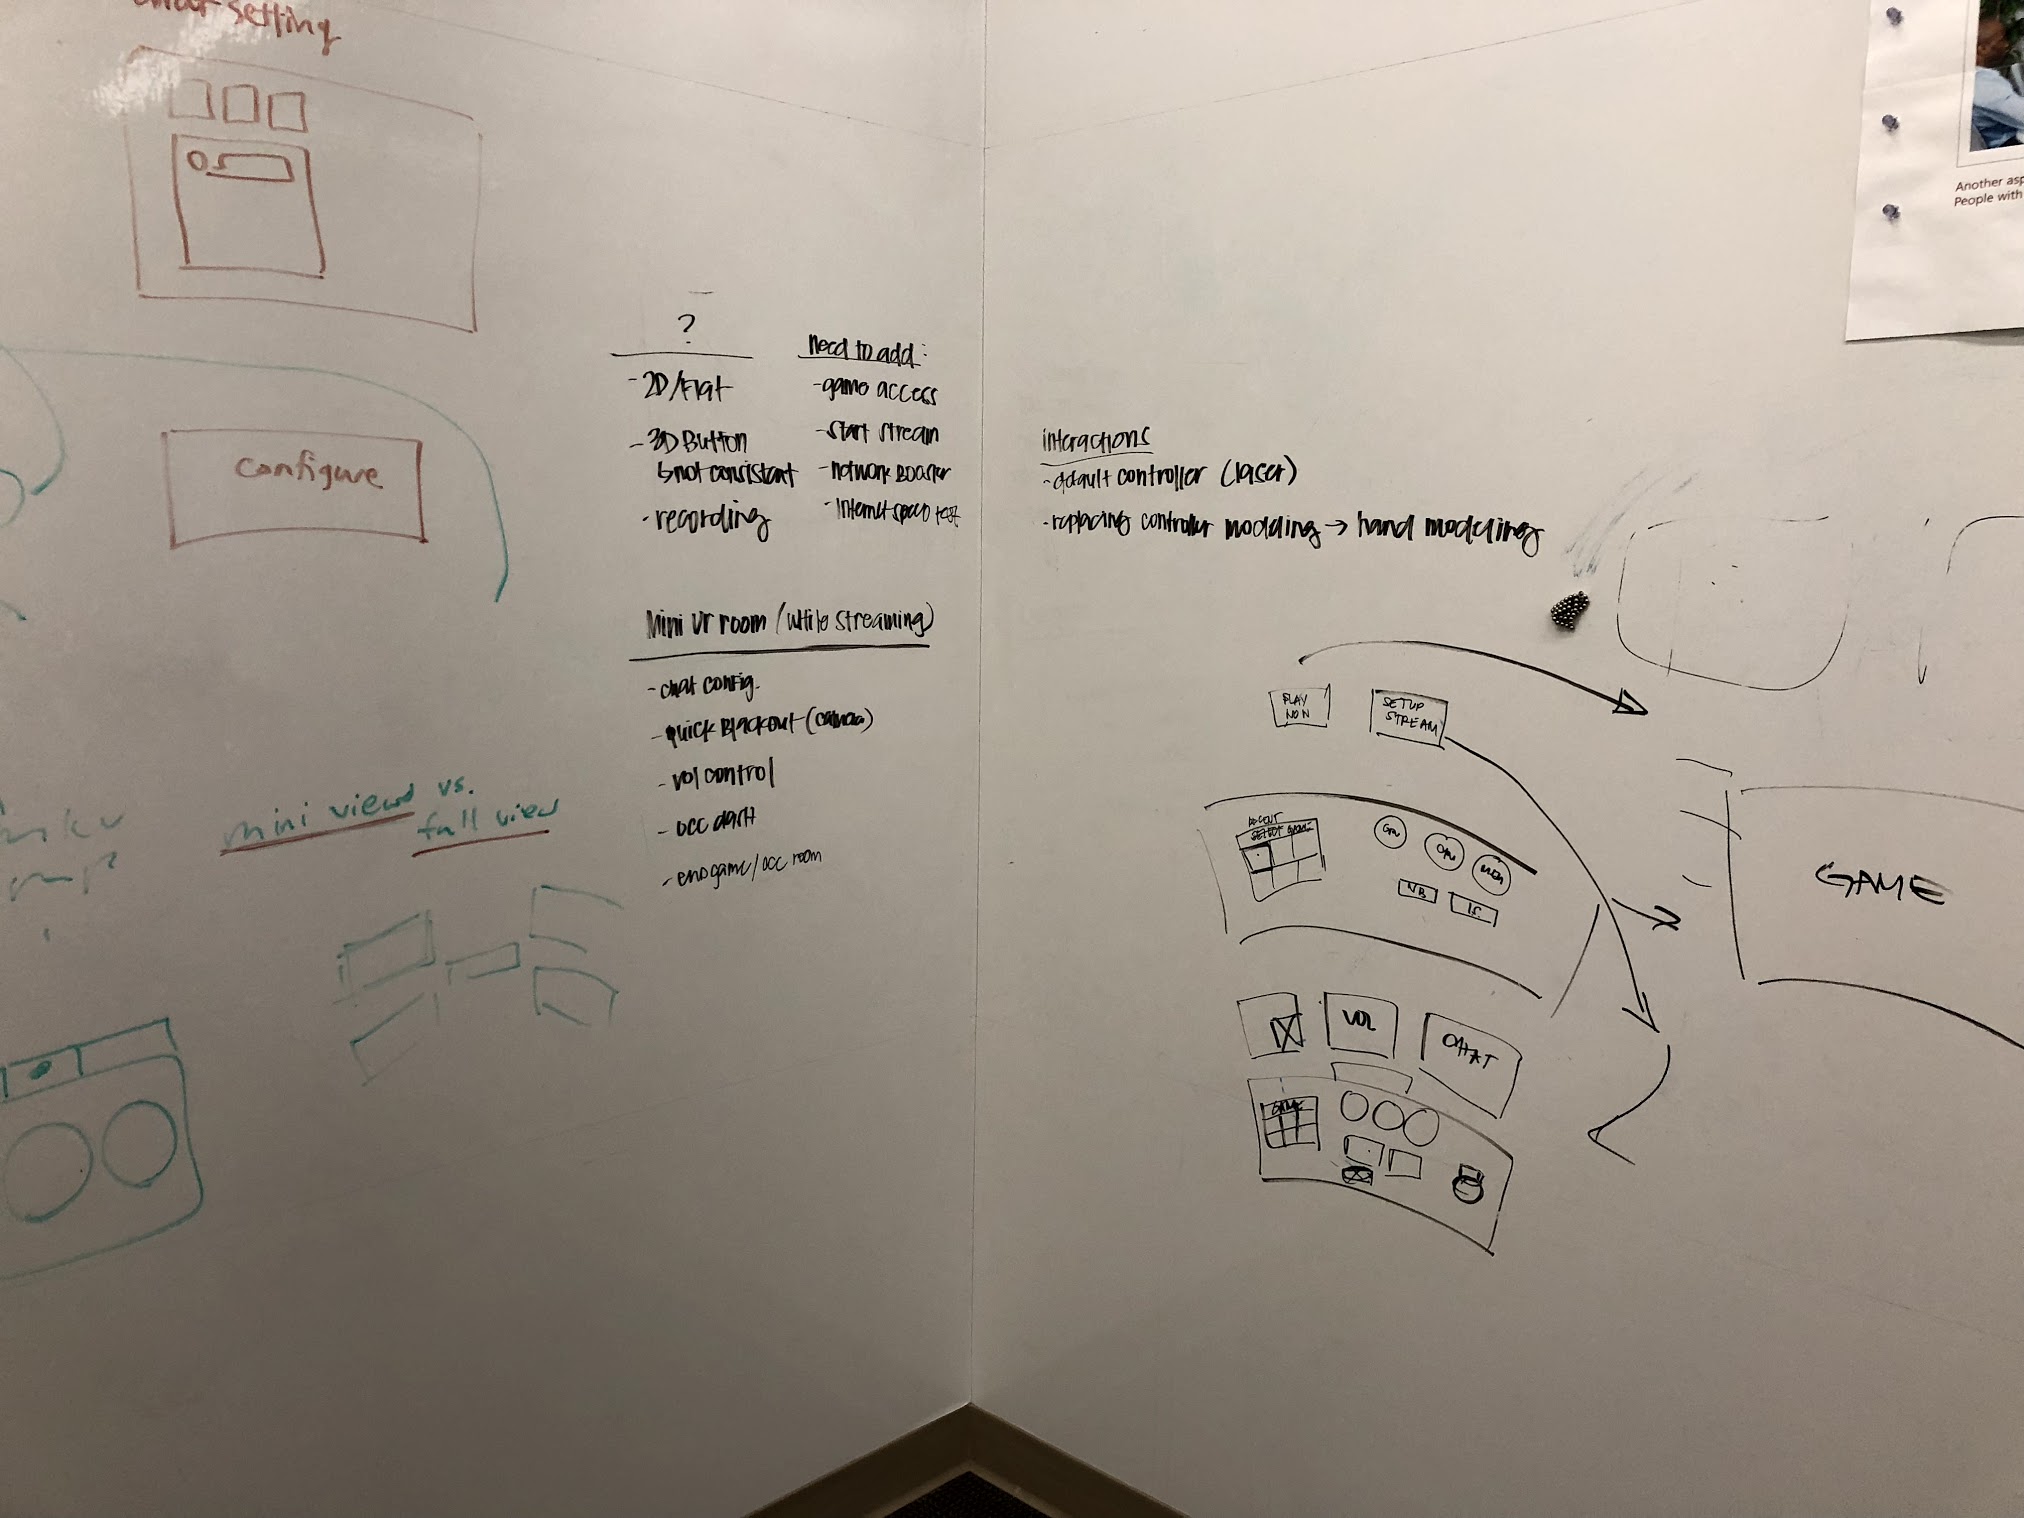 setting
Configure
mini view vs.
full view
?
- 2D/Flat
- 3D Button
↳ not consistant
- recording
need to add:
- game access
- start stream
- network Booster
- Internet speed test
Mini Vr room (while streaming)
- chat config.
- quick Blackout (camera)
- vol control
- occ dash
- end game/occ room
interactions
- default controller (laser)
- replacing controller modeling → hand modeling
PLAY
NOW
SETUP
STREAM
RECENT
SELECT GAME
GPU
CPU
NB
IS
GAME
VOL
CHAT
GAME
Another asp
People with